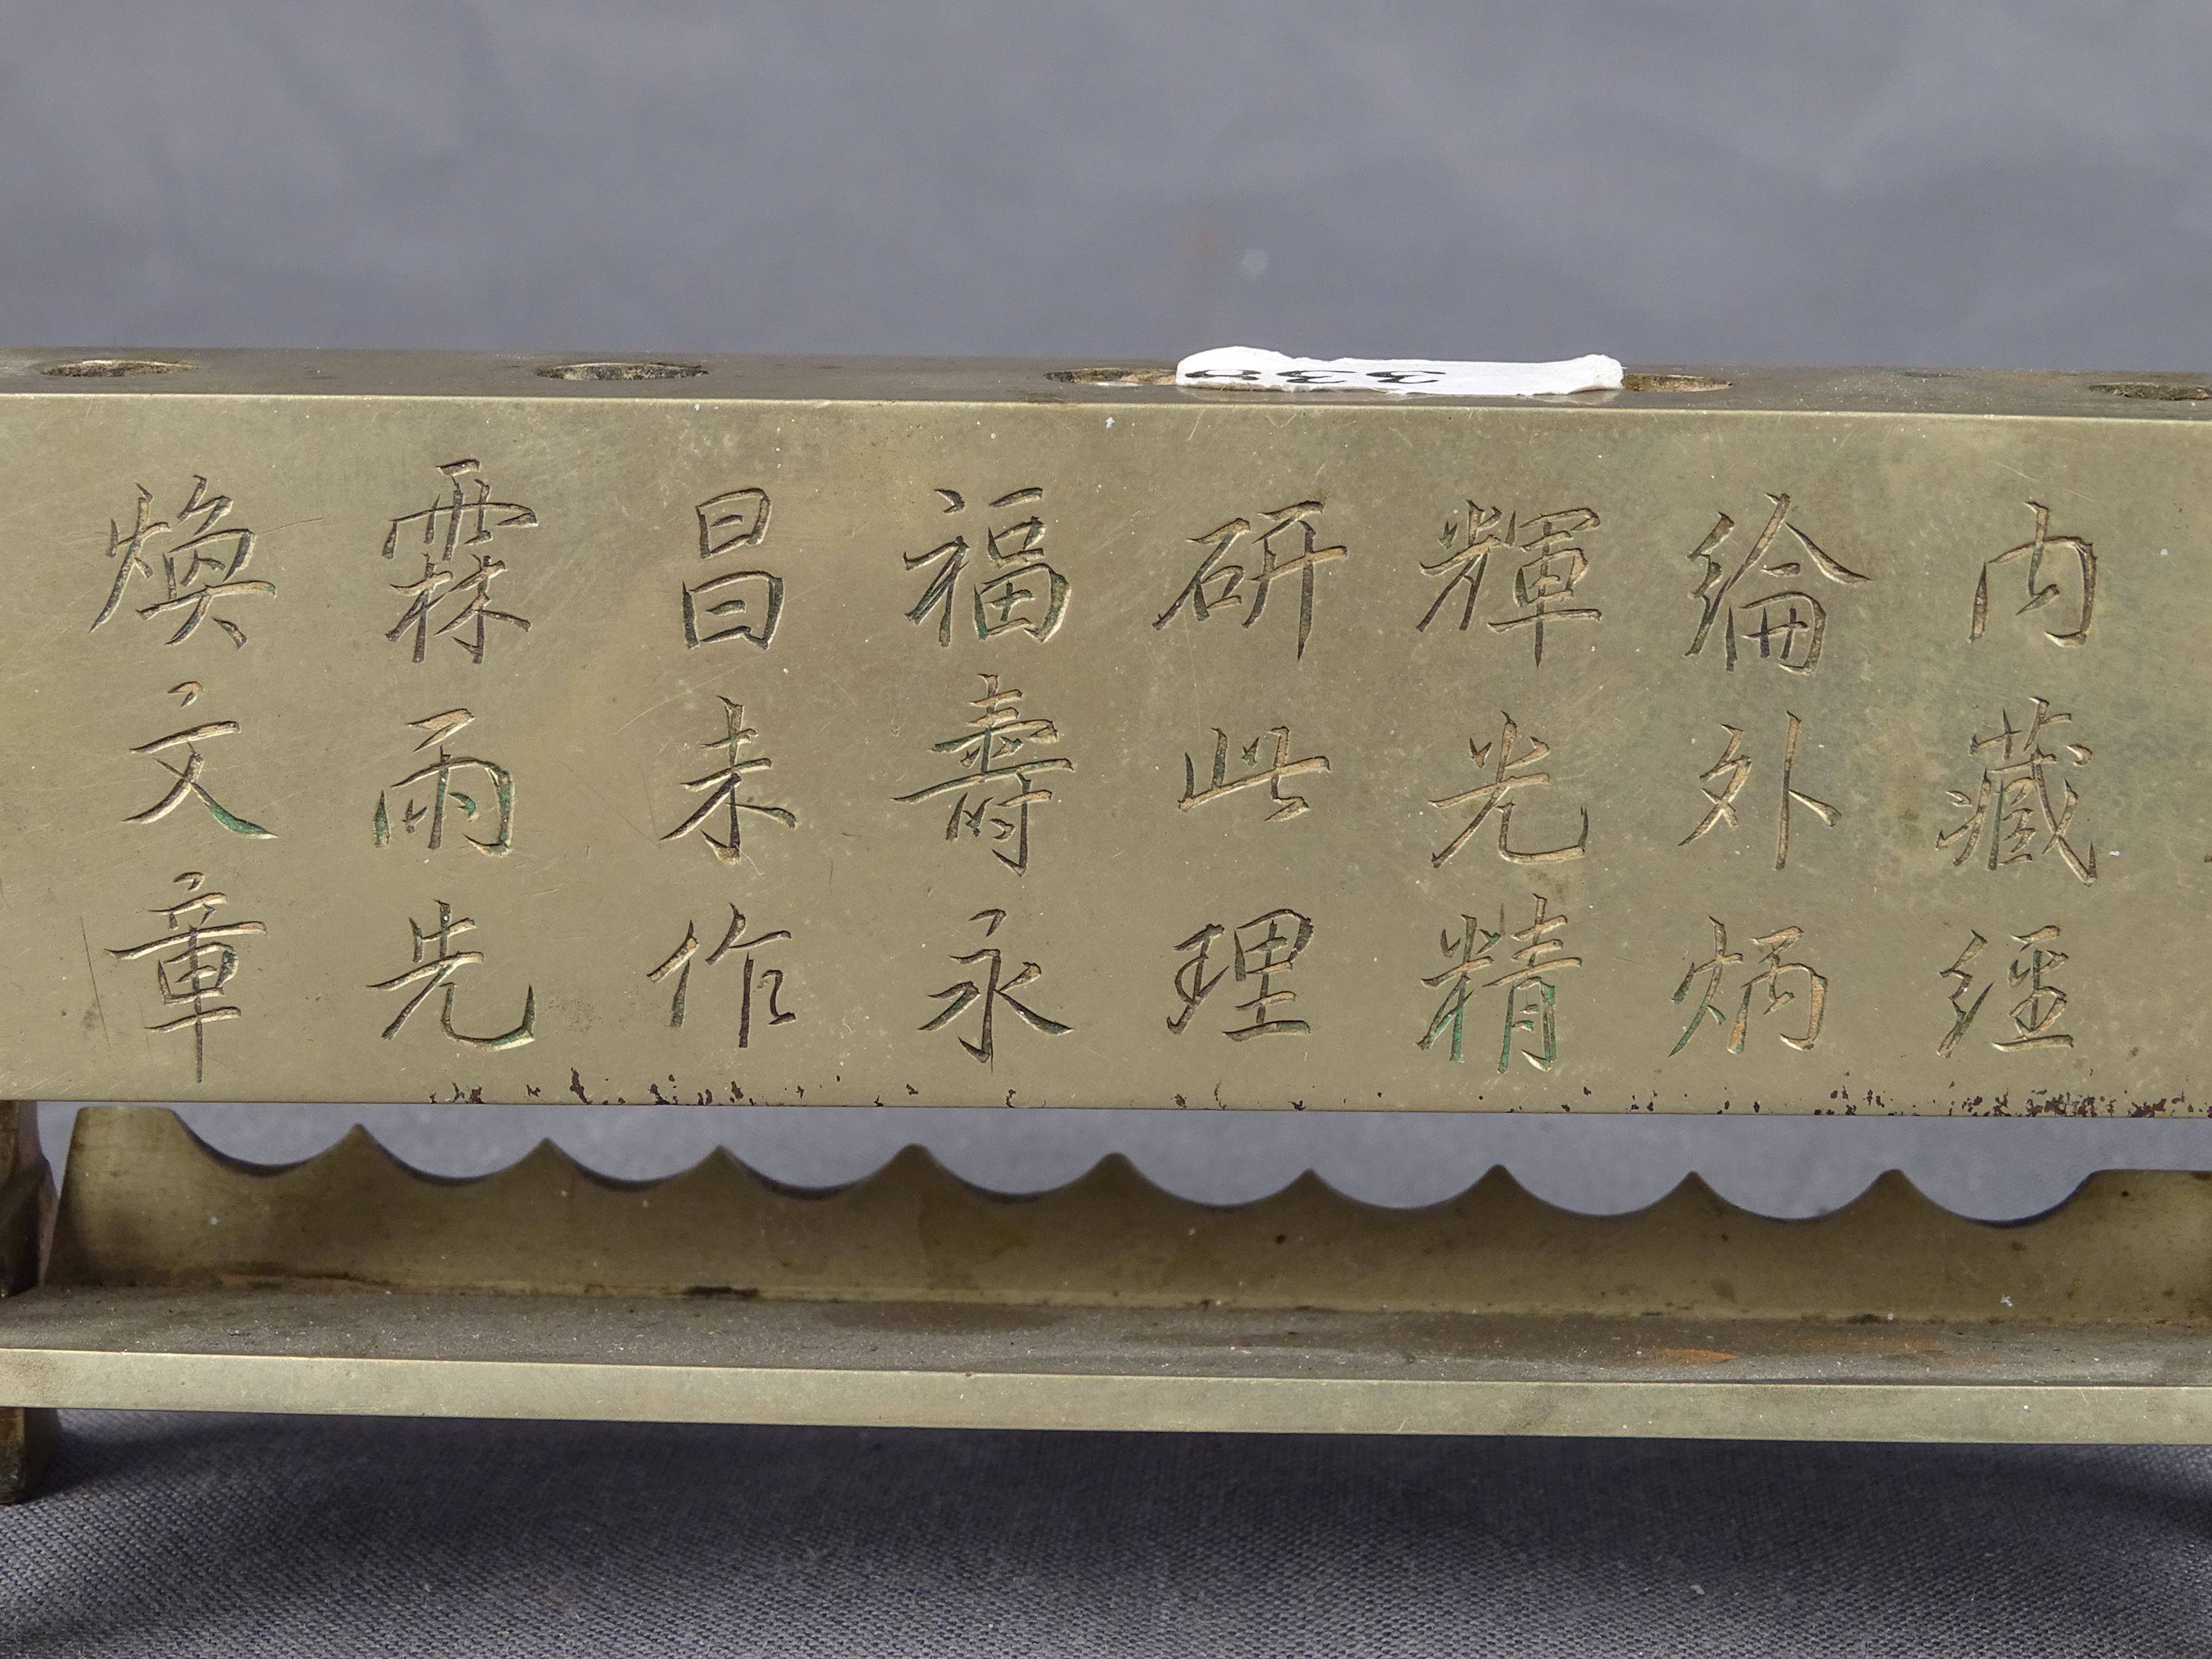 內藏經
綸外炳
輝光精
研此理
福壽永
昌未作
霖雨先
煥文章